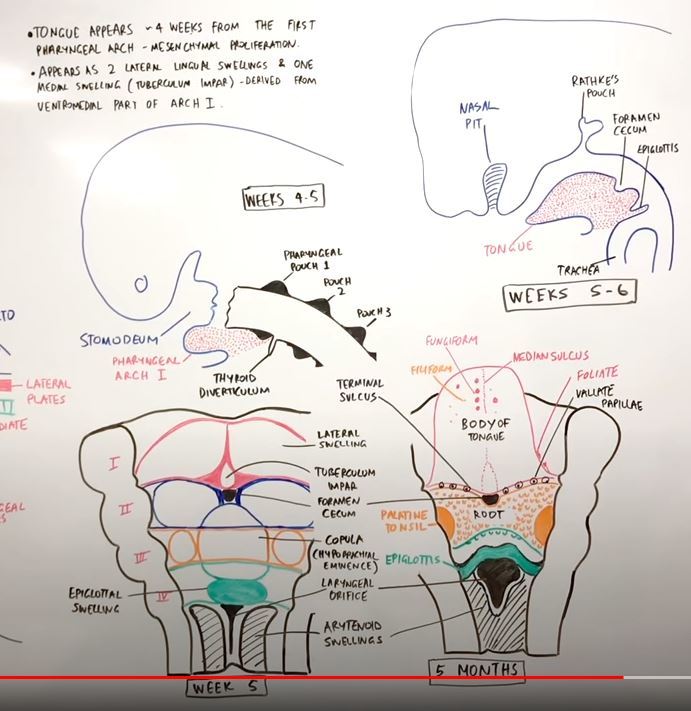 • TONGUE APPEARS ~4 WEEKS FROM THE FIRST
PHARYNGEAL ARCH - MESENCHYMAL PROLIFERATION.
• APPEARS AS 2 LATERAL LINGUAL SWELLINGS & ONE
MEDIAL SWELLING (TUBERCULUM IMPAR) - DERIVED FROM
VENTROMEDIAL PART OF ARCH I.
RATHKE'S
POUCH
NASAL
PIT
FORAMEN
CECUM
EPIGLOTTIS
TONGUE
TRACHEA
WEEKS 5-6
WEEKS 4-5
PHARYNGEAL
POUCH 1
POUCH
2
POUCH 3
STOMODEUM
PHARYNGEAL
ARCH I
THYROID
DIVERTICULUM
LATERAL
PLATES
DIATE
GEAL
TERMINAL
SULCUS
FUNGIFORM
MEDIAN SULCUS
FILIFORM
FOLIATE
VALLATE
PAPILLAE
BODY OF
TONGUE
LATERAL
SWELLING
TUBERCULUM
IMPAR
FORAMEN
CECUM
COPULA
(HYPOBRACHIAL
EMINENCE)
LARYNGEAL
ORIFICE
ARYTENOID
SWELLINGS
I
II
III
IV
EPIGLOTTAL
SWELLING
WEEK 5
PALATINE
TONSIL
ROOT
EPIGLOTTIS
5 MONTHS